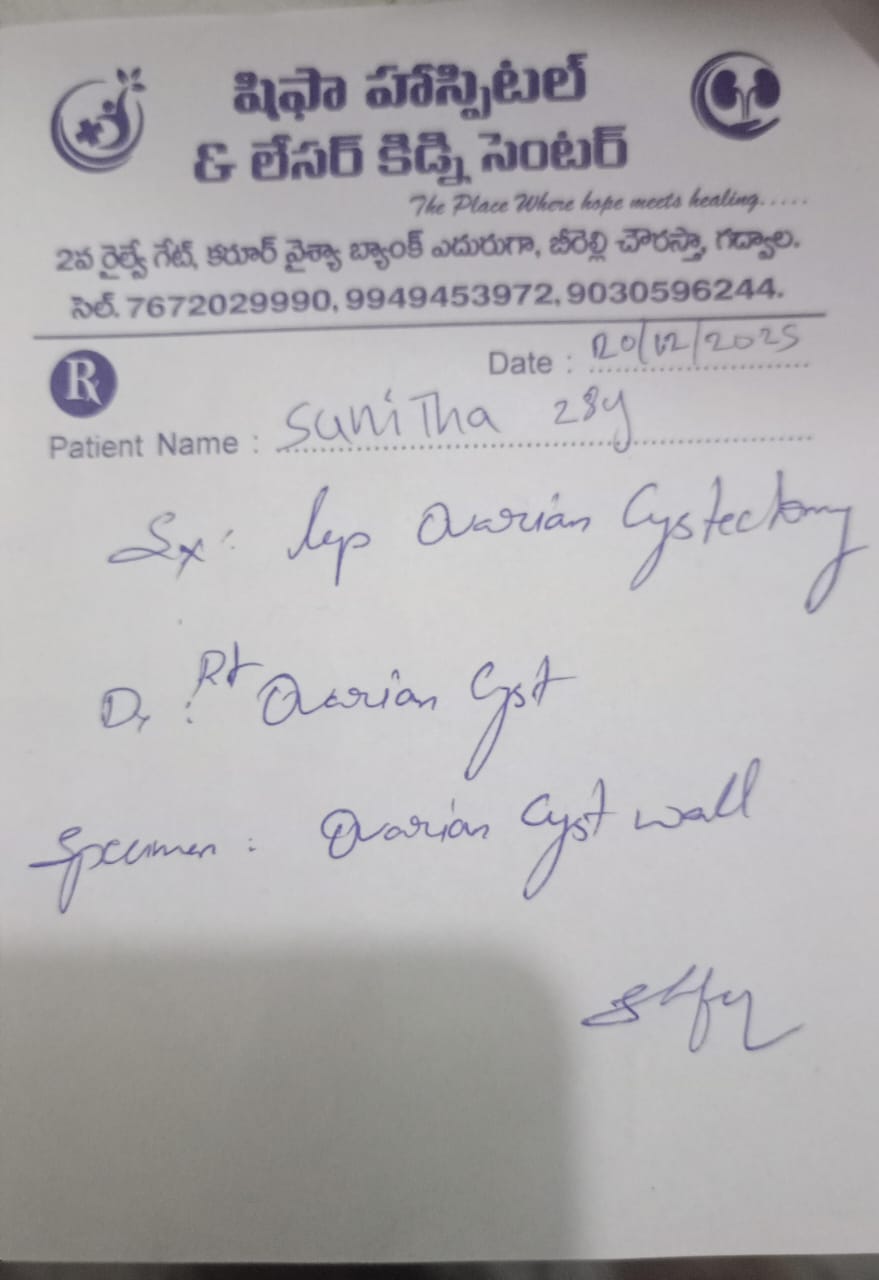 షిఫా హాస్పిటల్
& లేసర్ కిడ్ని సెంటర్
The Place Where hope meets healing.....
2వ రైల్వే గేట్, కరూర్ వైశ్యా బ్యాంక్ ఎదురుగా, బీరెల్లి చౌరస్తా, గద్వాల.
సెల్. 7672029990, 9949453972, 9030596244.
Rx
Date : 20/12/2025
Patient Name : Sunitha 28y
Sx : lap Ovarian Cystectomy
D, : Rt Ovarian Cyst
Specimen : Ovarian Cyst wall